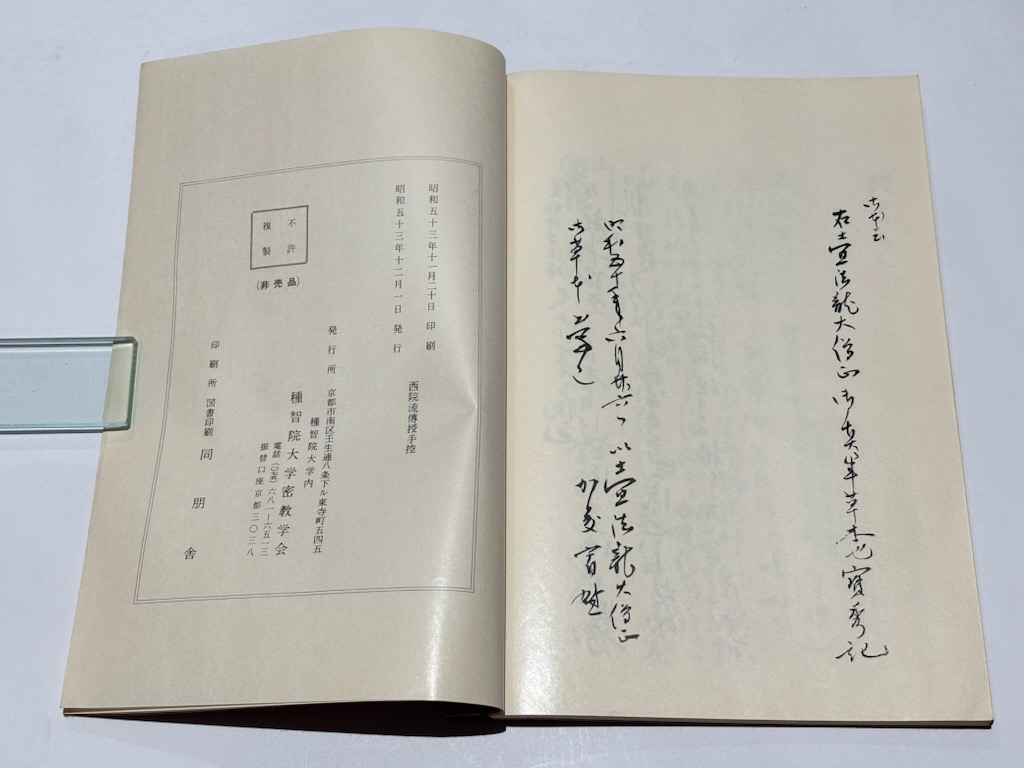 御本云
右土宜法龍大僧正御真筆草本也寶秀記
昭和五十年六月廿六日以土宜法龍大僧正
御草本
昭和五十三年十一月二十日 印刷
昭和五十三年十二月一日 発行
西院流傳授手控
発行所 京都市南区壬生通八条下ル東寺町五四五
種智院大学内
種智院大学密教学会
電話(〇七五)六八一−六五一三
振替口座京都三〇三八
不許
複製
(非売品)
印刷所 図書印刷 同朋舎